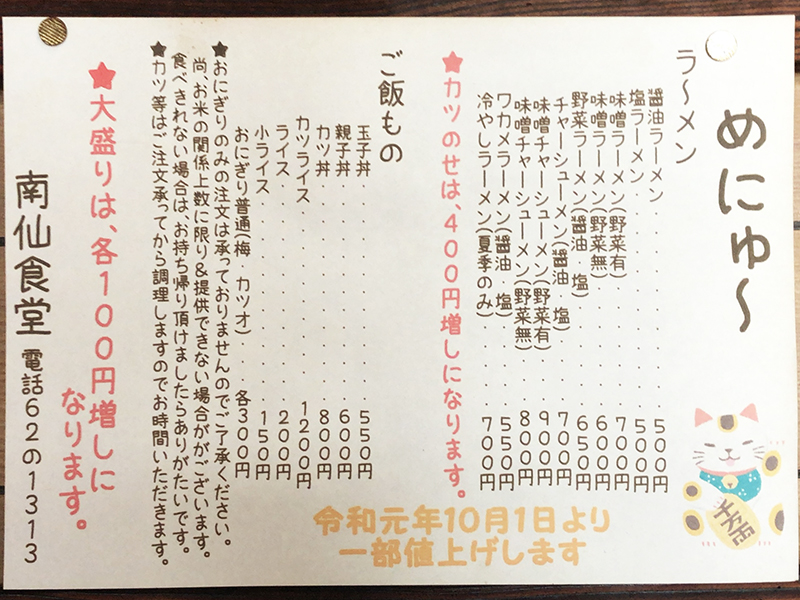 めにゅ～
ラ～メン
醤油ラーメン 500円
塩ラーメン 500円
味噌ラーメン(野菜有) 700円
味噌ラーメン(野菜無) 600円
野菜ラーメン(醤油・塩) 650円
チャーシューメン(醤油・塩) 700円
味噌チャーシューメン(野菜有) 900円
味噌チャーシューメン(野菜無) 800円
ワカメラーメン(醤油・塩) 550円
冷やしラーメン(夏季のみ) 700円
★カツのせは、400円増しになります。
ご飯もの
玉子丼 550円
親子丼 600円
カツ丼 800円
カツライス 1200円
ライス 200円
小ライス 150円
おにぎり普通(梅・カツオ) 各300円
★おにぎりのみの注文は承っておりませんのでご了承ください。
尚、お米の関係上数に限り&提供できない場合ががございます。
食べきれない場合は、お持ち帰り頂けましたらありがたいです。
★カツ等はご注文承ってから調理しますのでお時間いただきます。
★大盛りは、各100円増しに
なります。
南仙食堂 電話62の1313
令和元年10月1日より
一部値上げします